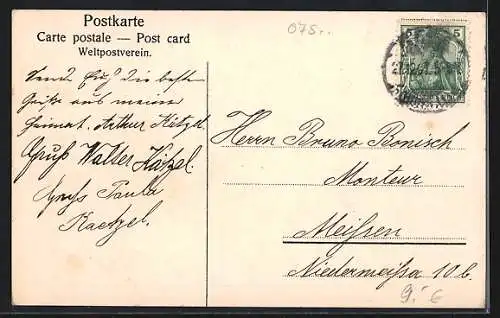 Postkarte
Carte postale — Post card
Weltpostverein.
075.-
5
Sende Euch die besten
Grüße aus meiner
Heimat. Arthur Kätzel.
Gruß Walter Kätzel.
Gruss Paula
Kaetzel.
Herrn Bruno Bonisch
Monteur
Meißen
Niedermeißa 10 b.
9.- €